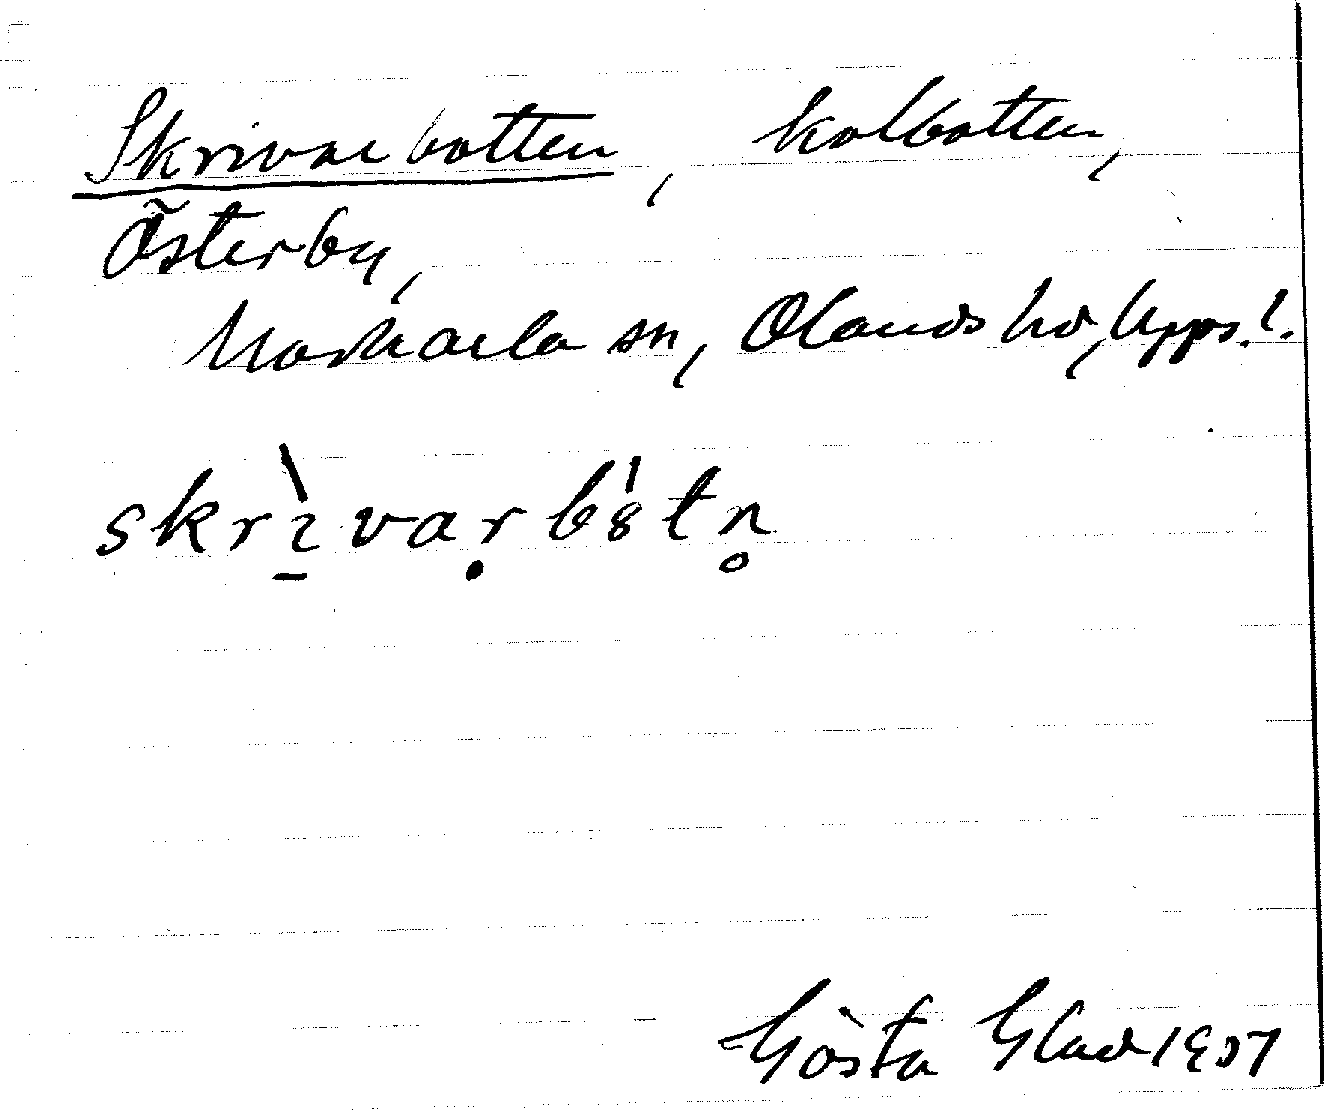 Skrivarbotten, kolbotten,
Österby,
Morkarla sn, Olands hd, Upps.l.
skrìvarbȣ́tn̥
Gösta Glad 1937